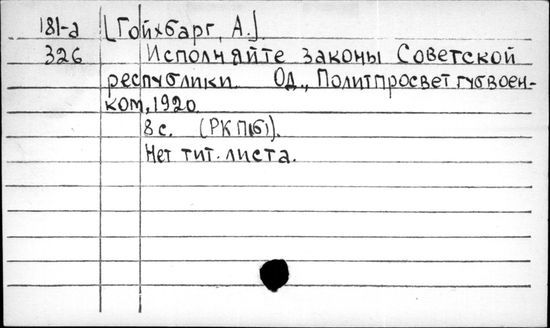 181-а [Гойхбарг, А.].
326 Исполняйте законы Советской
республики. Од., Политпросвет губвоен-
ком, 1920.
8 с. (РКП(б)).
Нет тит. листа.